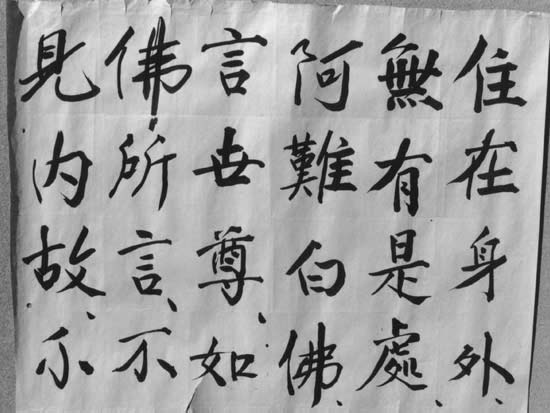 住在身外、
無有是處、
阿難白佛、
言世尊、如
佛所言、不
見内故、不